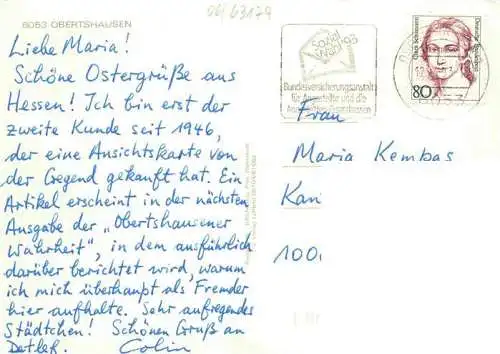 04/63179
6053 OBERTSHAUSEN
Liebe Maria!
Schöne Ostergrüße aus
Hessen! Ich bin erst der
zweite Kunde seit 1946,
der eine Ansichtskarte von
der Gegend gekauft hat. Ein
Artikel erscheint in der nächsten
Ausgabe der „Obertshausener
Wahrheit", in dem ausführlich
darüber berichtet wird, warum
ich mich überhaupt als Fremder
hier aufhalte. Sehr aufregendes
Städtchen! Schönen Gruß an
Detlef. Colin
Sozial
Wahl '93
Bundesversicherungsanstalt
für Angestellte und die
Clara Schumann
Deutsche Bundespost
80
Frau
Maria Kembas
Kan
100